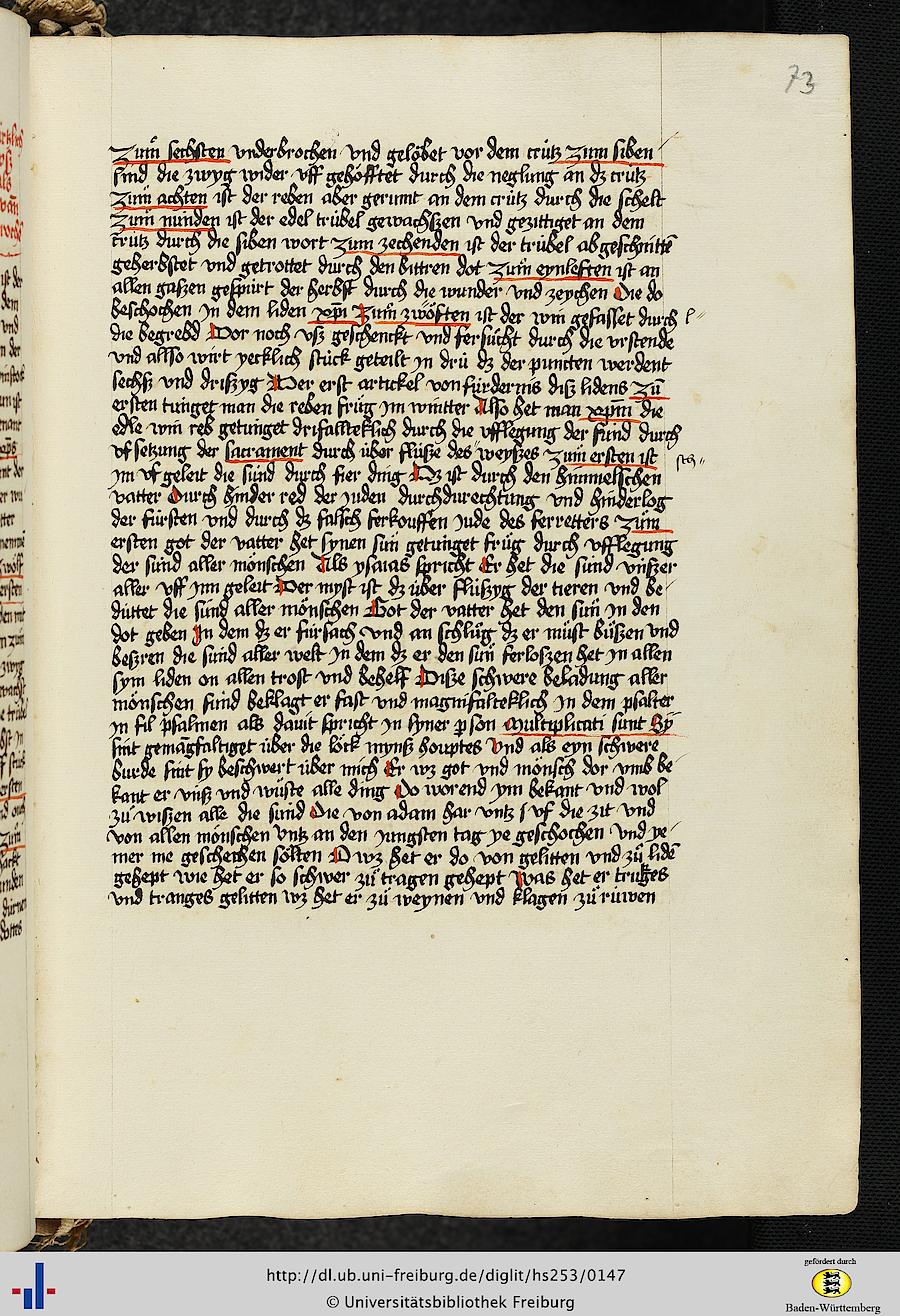 73
Zum sechsten vnderbrochen vnd gelöbet vor dem crütz Zum siben
sind die zwyg wider vff gehöfftet durch die neglung an dz crütz
Zum achten ist der reben aber gerumt an dem crütz durch die schelt
Zum nünden ist der edel trübel gewachszen vnd gezittiget an dem
crütz durch die siben wort Zum zechenden ist der trübel abgeschnittē
geherbstet vnd getrottet durch den bittren dot Zum eynleften ist an
allen gaszen gespürt der herbst durch die wunder vnd zeychen Die do
beschochen jn dem liden xp̄i Zum zwöften ist der win gefasset durch
die begrebd Dor noch vsz geschenckt vnd fersücht durch die vrstende
vnd allso wirt yecklich stück geteilt jn drü dz der puncten werdent
sechsz vnd driszyg Der erst artickel von fürdernis disz lidens Zū
ersten tunget man die reben früg jm wintter Also het man die
edle win reb getunget drifallteklich durch die vfflegung der sünd durch
vf setzung der sacrament durch über flüsze des weyszes Zum ersten ist
jm vf geleit die sünd durch fier ding Dz ist durch den himmelschen
vatter Durch hinder red der juden durchdurechtung vnd hinderlog
der fürsten vnd durch dz falsch ferkouffen jude des ferretters Zum
ersten got der vatter het synen sun getunget früg durch vfflegung
der sünd aller mönschen Als ysaias spricht Er het die sünd vnszer
aller vff jnn geleit Der myst ist dz über flüszyg der tieren vnd be
düttet die sünd aller mönschen Got der vatter het den sun in den
dot geben Jn dem dz er fürsach vnd an schlüg dz er müst büszen vnd
beszren die sünd aller welt Jn dem dz er den sun ferloszen het jn allen
sym liden on allen trost vnd behelf Disze schwere beladung aller
mönschen sünd beklagt er fast vnd magnifalteklich jn dem psalter
jn fil psalmen als dauit spricht jn syner person Multiplicati sunt Sy
sint gemāgfaltiget über die löck mynsz houptes Vnd als eyn schwere
burde sint sy beschwert über mich Er wz got vnd mönsch dor vmb be
kant er vnsz vnd wüste alle ding Do worend ym bekant vnd wol
zü wiszen alle die sünd Die von adam har vntz vf die zit vnd
von allen mönschen vntz an den jungsten tag ye geschochen vnd ye
mer me geschechen solten D wz het er do von gelitten vnd zü lidē
gehept wie het er so schwer zü tragen gehept Was het er
vnd tranges gelitten wz het er zü weynen vnd klagen zü rüwen
http://dl.ub.uni-freiburg.de/diglit/hs253/0147
© Universitätsbibliothek Freiburg
gefördert durch
Baden-Württemberg